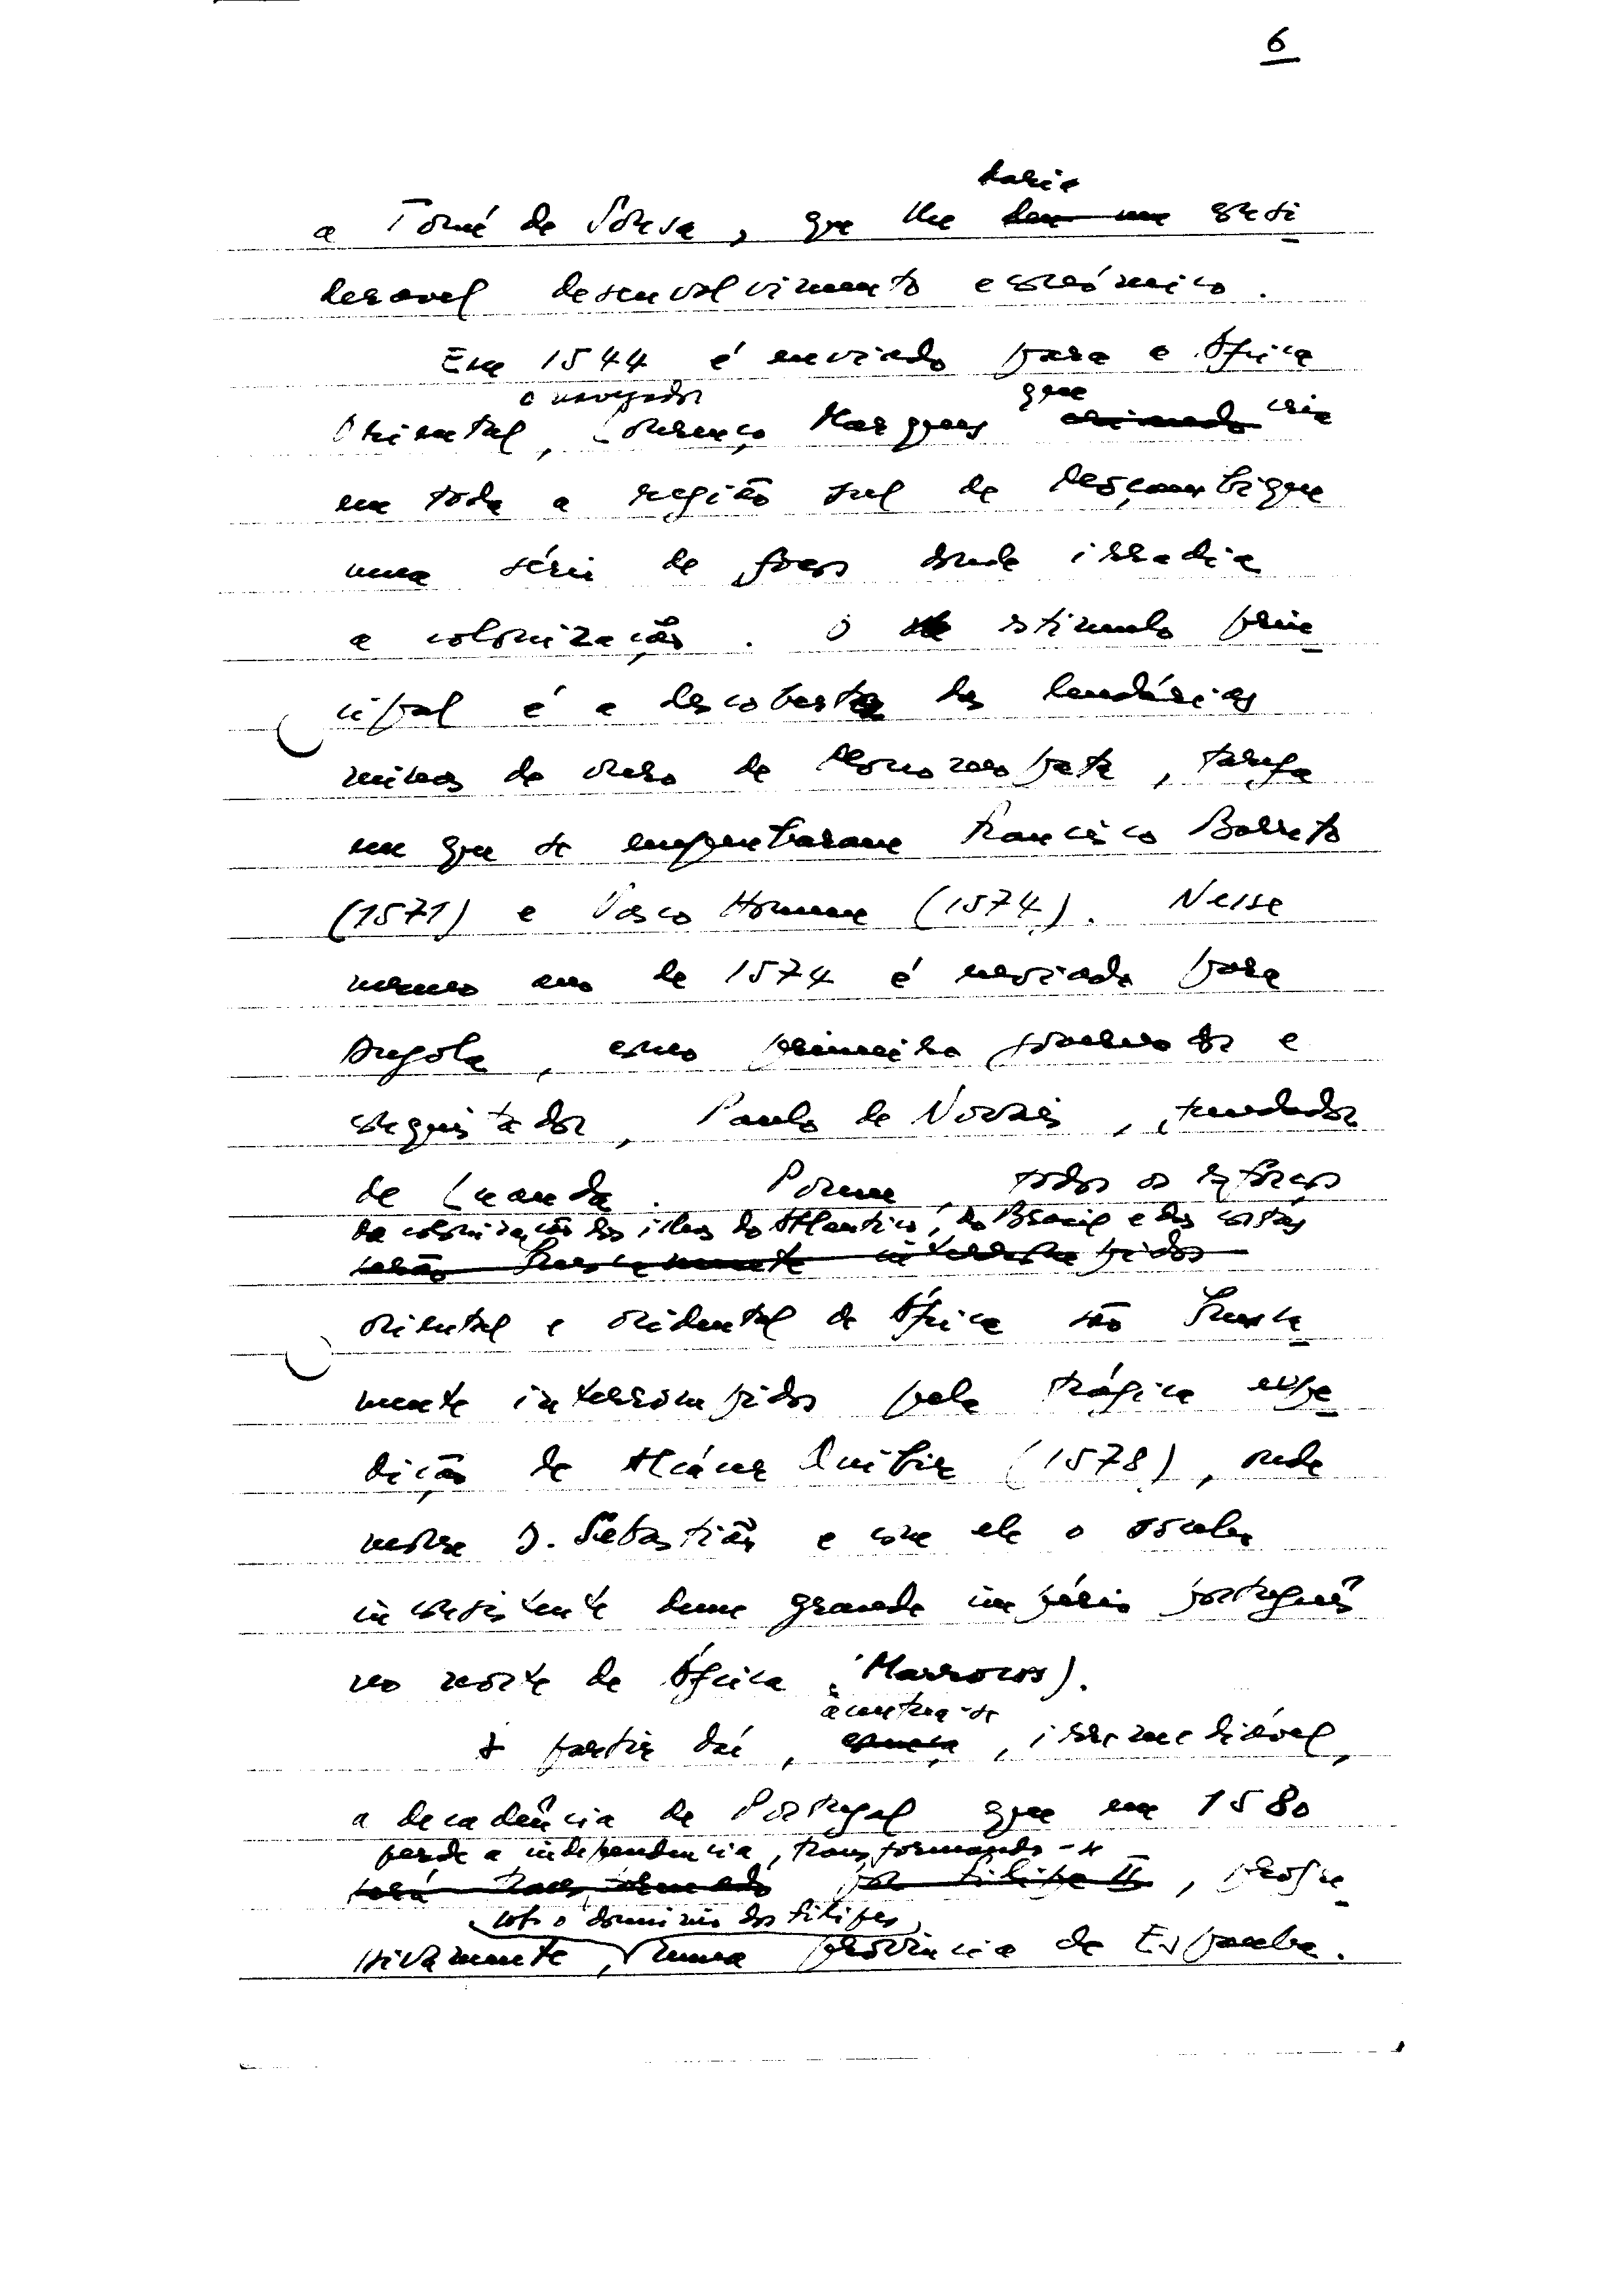 6
daria
a Tomé de Sousa, que lhe deu um consi-
derável desenvolvimento económico.
Em 1544 é enviado para a África
o navegador que
Oriental, Lourenço Marques criando cria
em toda a região sul de Moçambique
uma série de focos donde irradia
a colonização. O estímulo prin-
cipal é a descoberta das lendárias
minas de ouro de Monomotapata, tarefa
em que se empenharam Francisco Barreto
(1571) e Vasco Homem (1574). Nesse
mesmo ano de 1574 é enviado para
Angola, como primeiro governador e
conquistador, Paulo de Novais, fundador
de Luanda. Porém, todos os esforços
da colonização das ilhas do Atlantico, do Brasil e das costas
serão bruscamente interrompidos
oriental e ocidental de África são brusca-
mente interrompidos pela trágica expe-
dição de Alcácer Quibir (1578), onde
morre D. Sebastião e com ele o sonho
inconsistente dum grande império português
no norte de África (Marrocos).
acentua-se
A partir daí, começa, irremediável,
a decadência de Portugal que em 1580
perde a independencia, transformando-se
será transformado por Filipe II, progre-
sob o dominio dos Filipes,
ssivamente, numa província de Espanha.